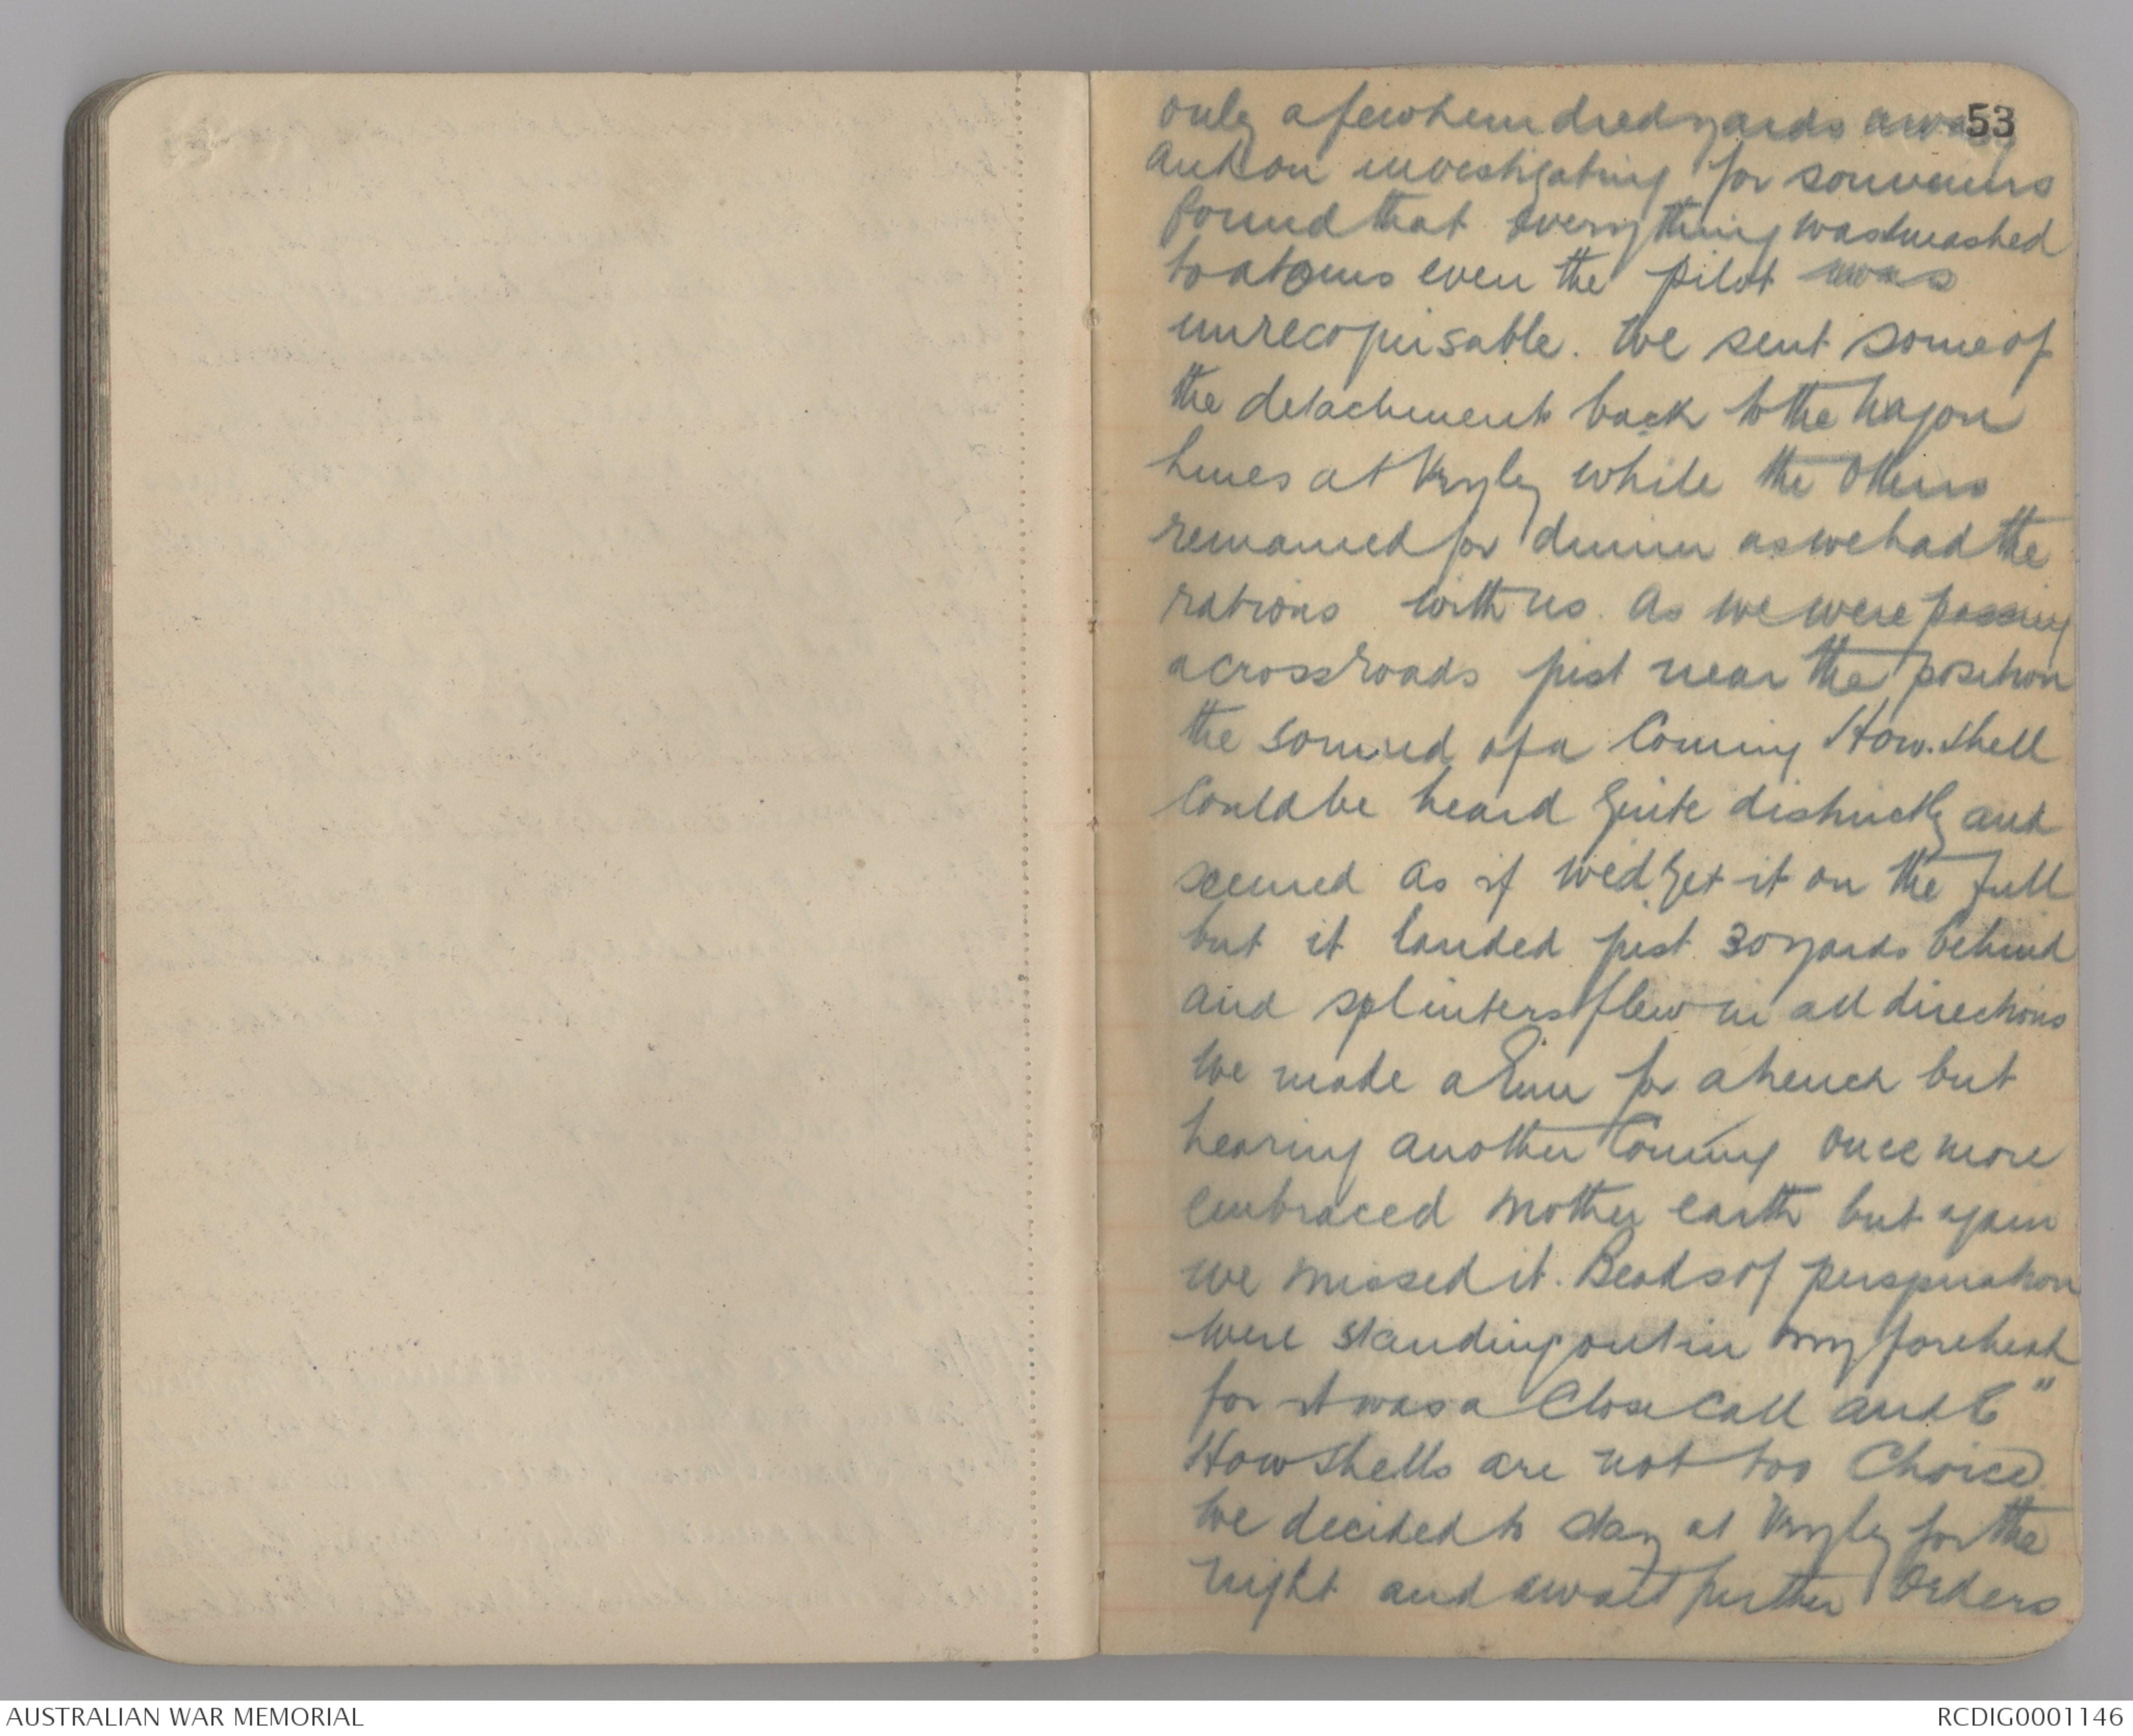 53
only a few hundred yards away
and on investigating for souvenirs
found that everything was smashed
to atoms even the pilot was
unrecognisable. We sent some of
the detachment back to the wagon
lines at Vryley while the others
remained for dinner as we had the
rations with us. As we were passing
a crossroads just near the position
the sound of a coming How. shell
could be heard quite distinctly and
seemed as if we'd get it on the full
but it landed just 30 yards behind
and splinters flew in all directions
We made a run for a trench but
hearing another coming once more
embraced mother earth but again
we missed it. Beads of perspiration
were standing out in my forehead
for it was a close call and 6"
How shells are not too choice.
We decided to stay at Vryley for the
night and await further orders
AUSTRALIAN WAR MEMORIAL
RCDIG0001146